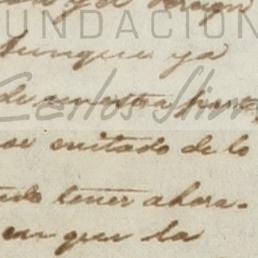 FUNDACIÓN
aunque ya
Carlos Slim
de nuestra parte
se evitado de lo
tener ahora.
en que la